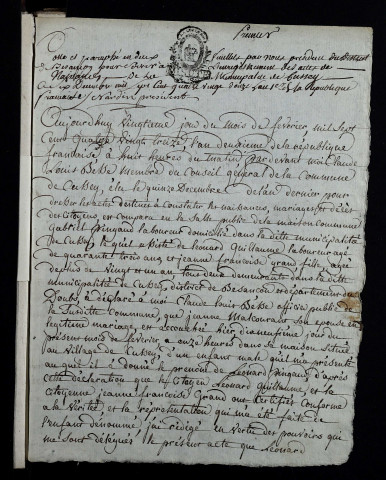 Premier
Cotte et paraphé en deux feuillets par nous président du District
de Besançon pour servir a l'enregistrement des actes de
Naissances de la Municipalité de Cussey
Ce x décembre mil sept cent quatre vingt douze l'an 1er de la République
française président
Aujourdhuy vingtieme jour du mois de fevrier mil sept
cent quatre vingt treize l'an deuxieme de la république
française à huit heures du matin pardevant moi Claude
Louis Besse membre du Conseil general de la commune
de Cussey, élu le quinze Decembre de lan dernier pour
dresser les actes destinés à constater les naissances, mariages et décès
des citoyens est comparu en la salle public de la maison commune
Gabriel Vingand laboureur domicilié dans la ditte municipalité
de Cussey, le quel assisté de Leonard Guillaume laboureur agé
de quarante trois ans et jeanne francoise grand fille agée
de plus de vingt et un an tous deux demeurants dans la ditte
municipalité de Cussey, district de Besançon et département du
Doubs, à déclaré à moi Claude Louis Besse officier public de
la susditte commune, que jeanne Malcourant son epouse en
legitime mariage, est accouchée hier dixneufieme jour du
présent mois de fevrier a onze heures dans sa maison située
au village de Cussey d'un enfant male quel m'a présenté
au quel il a donné le prenom de Leonard Vingand, d'après
cette déclaration que le citoyen Leonard Guillaume et la
citoyenne jeanne francoise Grand ont certifiés conforme
a la vérité, et la réprésentation qui m'a été faite de
l'enfant dénommé, j'ai rédigé en vertu des pouvoirs qui
me sont délégués le présent acte que Leonard